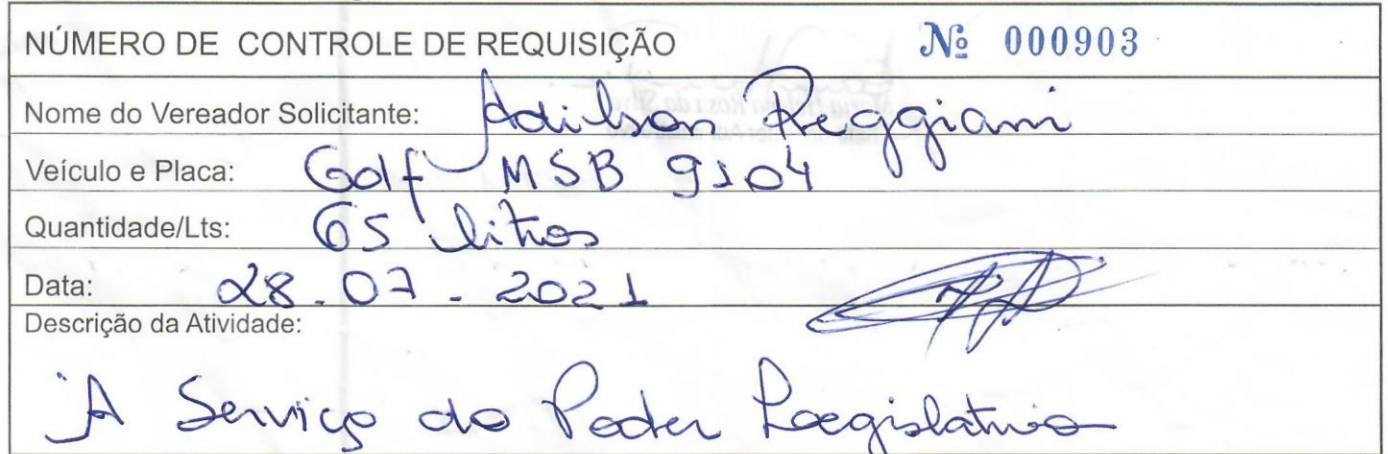 NÚMERO DE CONTROLE DE REQUISIÇÃO Nº 000903
Nome do Vereador Solicitante: Adilson Reggiani
Veículo e Placa: Golf MSB 9104
Quantidade/Lts: 65 litros
Data: 28.07.2021
Descrição da Atividade:
A Serviço do Poder Legislativo